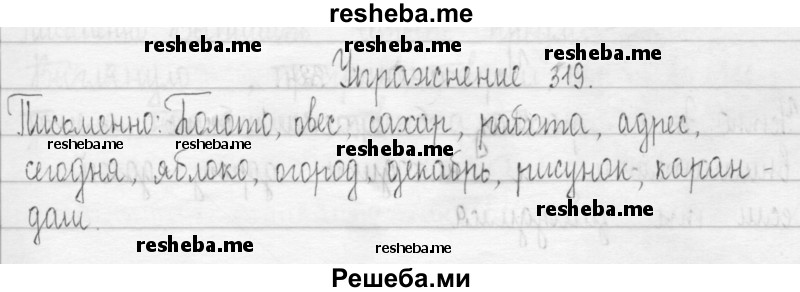 resheba.me
resheba.me resheba.me
Упражнение 319.
resheba.me
Письменно: Болото, овес, сахар, работа, адрес,
resheba.me resheba.me
сегодня, яблоко, огород, декабрь, рисунок, каран-
resheba.me
даш.
resheba.me resheba.me
Решеба.ми